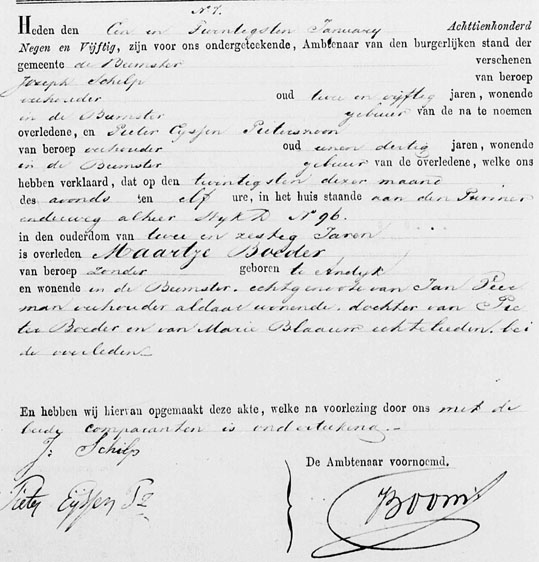 N 7.
Heden den Een en Twintigsten January Achttienhonderd
Negen en Vijftig, zijn voor ons ondergeteekende, Ambtenaar van den burgerlijken stand der
gemeente de Beemster verschenen
Joseph Schilp van beroep
veehouder oud twee en vijftig jaren, wonende
in de Beemster gebuur van de na te noemen
overledene, en Pieter Eyssen Pieterszoon
van beroep veehouder oud eenen dertig jaren, wonende
in de Beemster gebuur van de overledene, welke ons
hebben verklaard, dat op den twintigsten dezer maand
des avonds ten elf ure, in het huis staande aan den Purmer
enderweg alhier Wyk D N° 96.
in den ouderdom van twee en zestig Jaren
is overleden Maartje Boeder
van beroep zonder geboren te Andyk
en wonende in de Beemster. echtgenoote van Jan Pee
man veehouder aldaar wonende. dochter van Pie
ter Boeder en van Marie Blaauw echtelieden. bei
de overleden.
En hebben wij hiervan opgemaakt deze akte, welke na voorlezing door ons met de
beide comparanten is onderteekend.
J: Schilp
De Ambtenaar voornoemd.
Pieter Eyssen Pz
Boom